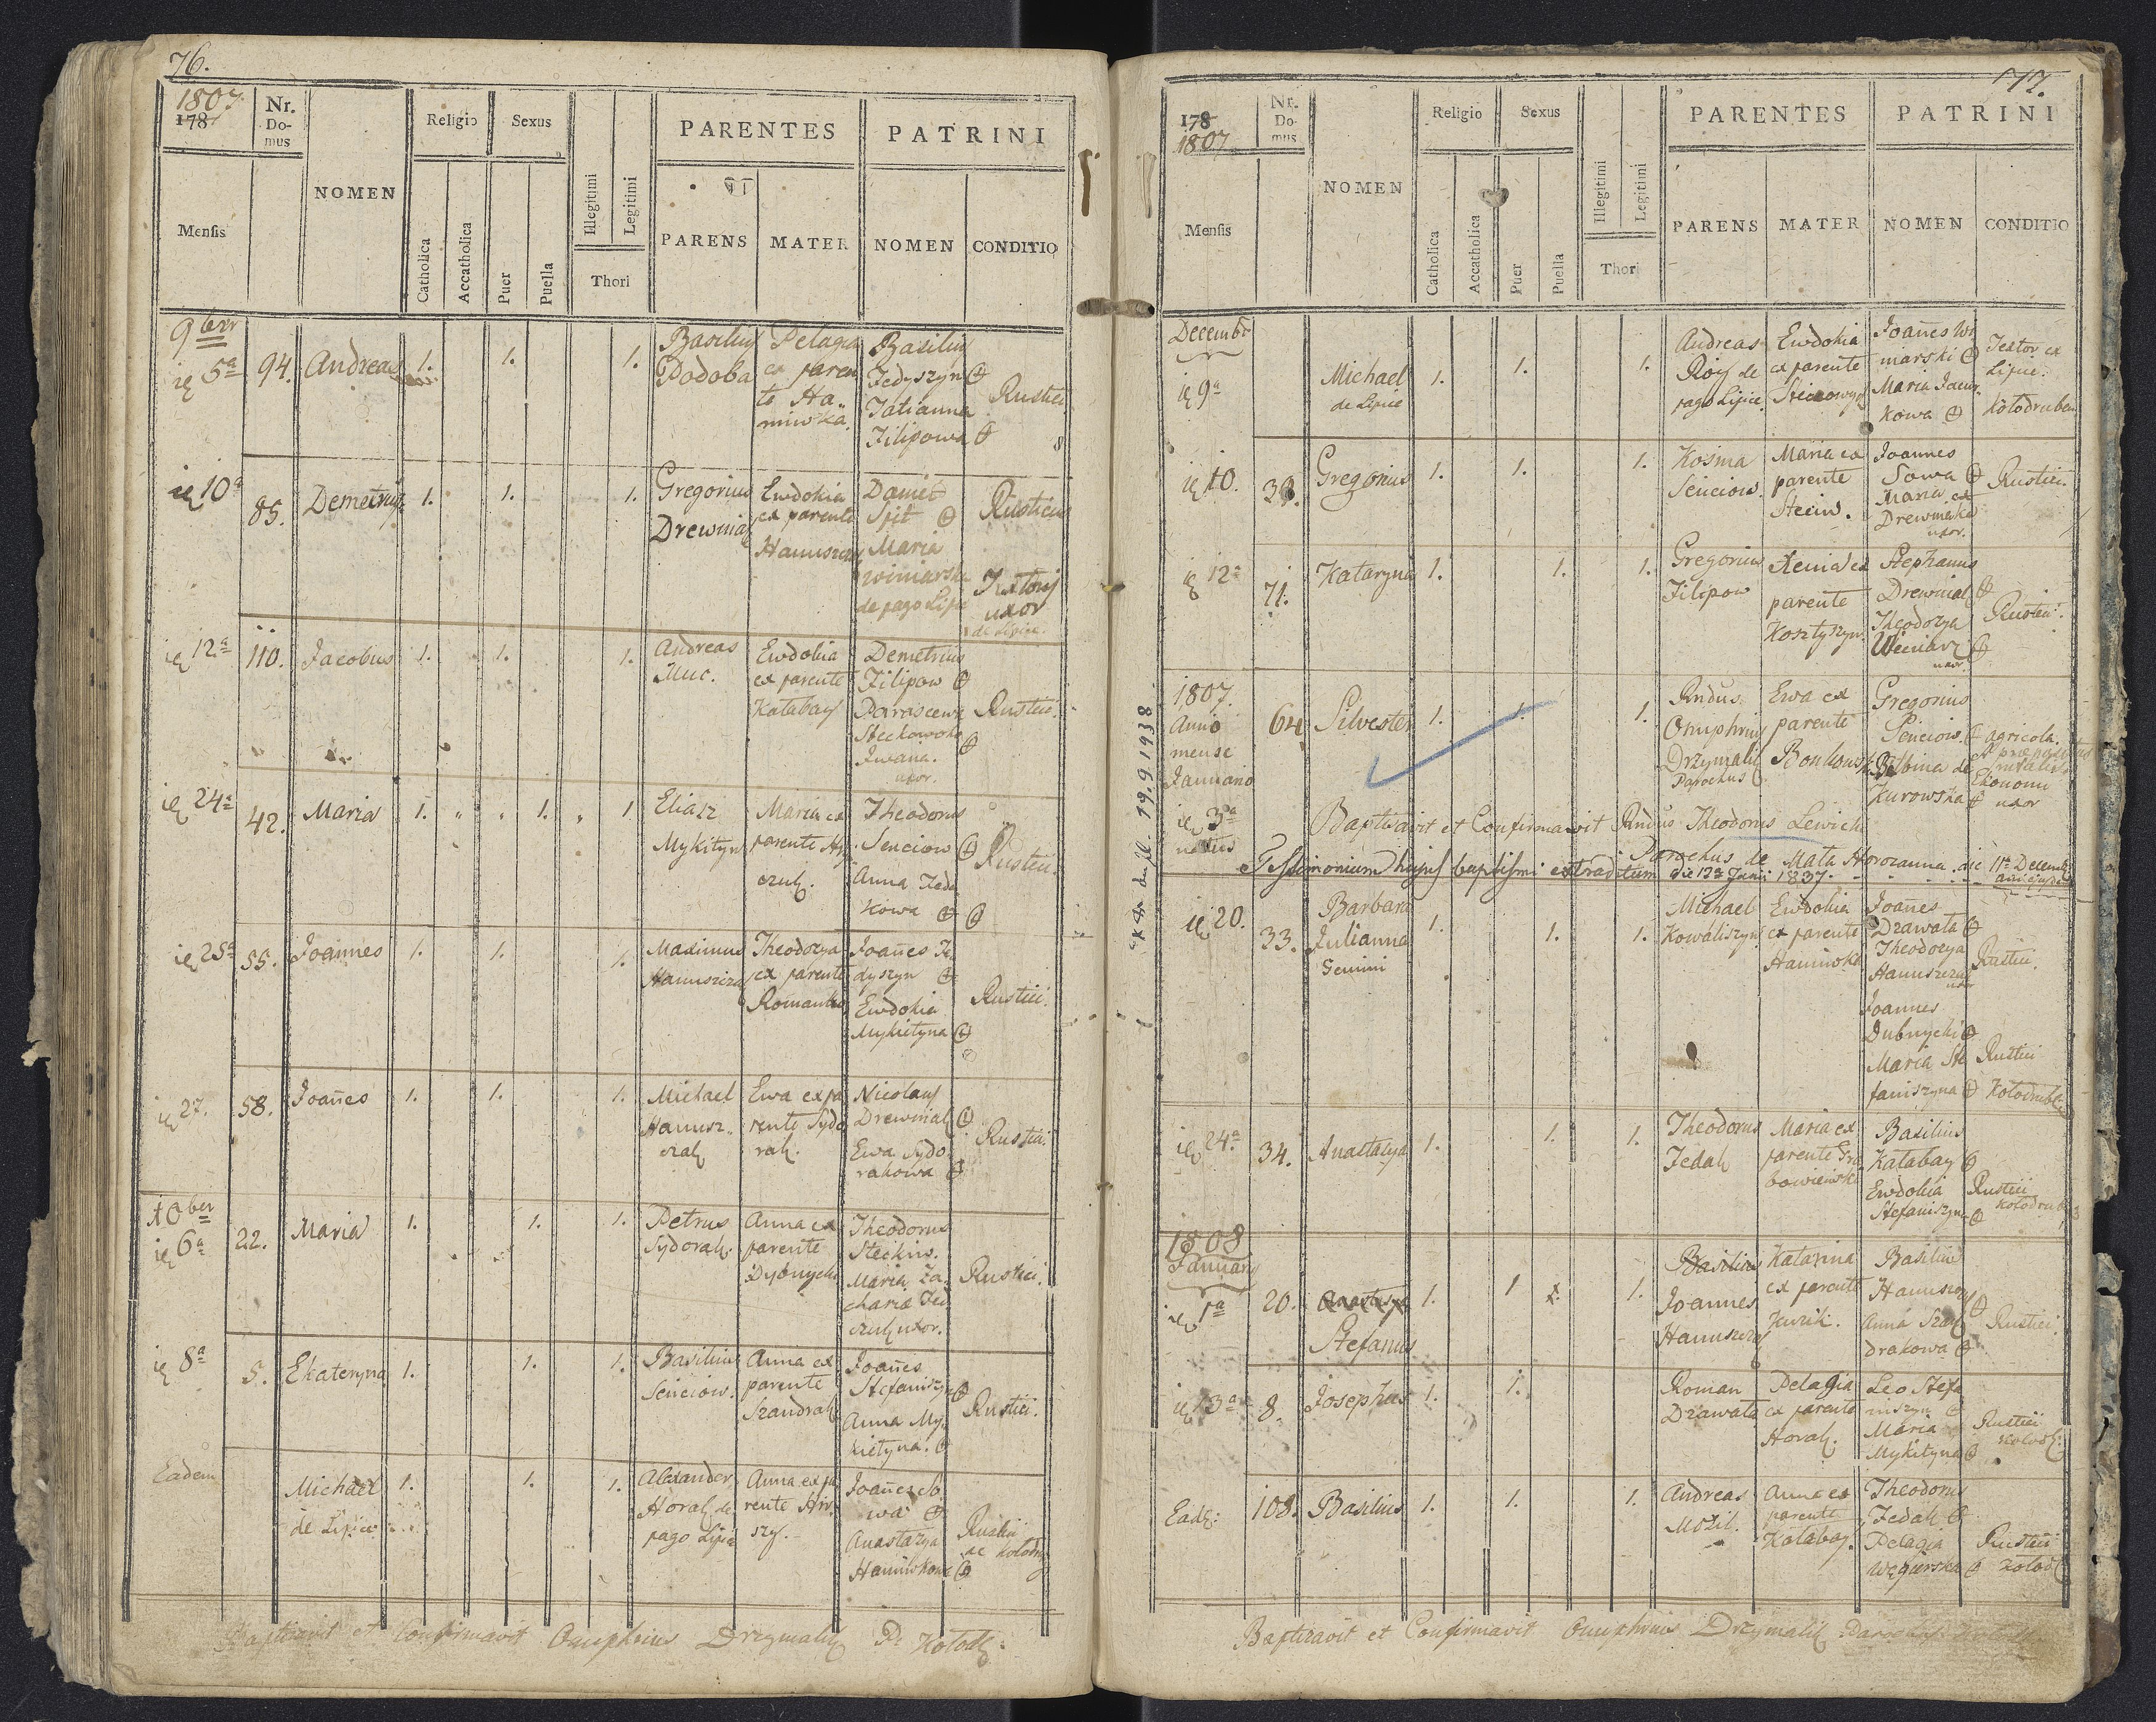 76.
1807.
178
Nr.
Do-
mus
NOMEN
Religio
Sexus
PARENTES
PATRINI
Mensis
Catholica
Accatholica
Puer
Puella
Illegitimi
Legitimi
Thori
PARENS
MATER
NOMEN
CONDITIO
9ber
5a 94. Andreas 1. 1. 1.
Basilius
Podoba
Pelagia
ex paren
te Ha„
Basilius
Fedyszyn
Tatianna
Filipowa
Rustici
10a 85. Demetrius 1. 1. 1.
Gregorius
Drewniak
Ewdokia
ex parente
Daniel
Spit
Maria
Winiarska
de pago Lipic
Rusticus
Textoris
uxor
de Lipice.
12a 110. Jacobus 1. 1. 1.
Andreas
Muc.
Ewdokia
ex parente
Katabay
Demetrius
Filipow
Parascewa
Steckowska
Iwana.
uxor.
Rustici.
24a 42. Maria 1. „ „ 1. „ 1.
Eliasz
Mykityn
Maria ex
parente Hry
czuk.
Theodorus
Senciow
Anna Feda
kowa
Rustici.
25a 55. Joannes 1. 1. 1.
Maximus
Hanuszczak
Theodozya
ex parente
Romanko
Joañes Fe
dyszyn
Ewdokia
Mykietyna
Rustici.
27. 58. Joañes 1. 1. 1.
Michael
Hanusz„
czak
Ewa ex pa
rente Sydo
rak.
Nicolaus
Drewniak
Ewa Sydo
rakowa
Rustici.
10ber
6a 22. Maria 1. 1. 1.
Petrus
Sydorak.
Anna ex
parente
Dybnycki
Theodorus
Steckiw.
Maria Za„
chariæ Fed
czuk uxor.
Rustici.
8a 5. Ekateryna 1. 1. 1.
Basilius
Senciow.
Anna ex
parente
Szandrak
Joañes
Stefaniszyn
Anna My„
kietyna.
Rustici.
Eadem Michael 1. 1. 1.
de Lipice
Alexander
Horak de
pago Lipic
Anna ex pa
rente Hry
szy.
Joañes So
wa
Anastazya
Haniwkowa
Rustici
de Kołodr
Baptizavit et Confirmavit Onuphrius Drzymalik P. Kołodr.
177.
178
1807
Nr.
Do-
mus
NOMEN
Religio
Sexus
PARENTES
PATRINI
Mensis
Catholica
Accatholica
Puer
Puella
Illegitimi
Legitimi
Thori
PARENS
MATER
NOMEN
CONDITIO
Decembr
9a Michael 1. 1. 1.
de Lipice
Andreas
Rois de
pago Lipice
Ewdokia
ex parente
Joañes Wi
niarski
Maria Jacus
kowa
Textor ex
Lipic.
Kołodruben
10. 39. Gregorius 1. 1. 1.
Kosma
Senciow.
Maria ex
parente
Steciw.
Joannes
Sowa
Maria ex
Drewniaka
uxor.
Rustici.
12a 71. Kataryna 1. 1. 1.
Gregorius
Filipow
Xenia ex
parente
Kosztyszyn.
Stephanus
Drewniak
Theodozya
uxor.
Rustici.
1807.
Anno
mense
Januario
3a
natus
64 Silvester 1. 1. 1.
Rndus
Onuphrius
Drzymalik
Parochus
Ewa ex
parente
Bonkowski
Gregorius
Senciow.
Balbina de
Kurowska
agricola.
Ekonomi
uxor
Baptizavit et Confirmavit Rndus Theodorus Lewicki
Parochus de Mała Horozanna die 11a Decemb
Testimonium hujus baptismi extraditum die 12a Junii 1837.
19.9.1938
20. 33. Barbara
Julianna
Gemini
1. 1. 1.
Michael
Kowaliszyn
Ewdokia
ex parente
Haniwska
Joañes
Dzawata
Theodozya
Hanuszczak
uxor
Joannes
Dubnycki
Maria Ste
faniszyna
Rustici.
Rustici
Kołodrub
24a 34. Anastasya 1. 1. 1.
Theodorus
Fedak
Maria ex
parente Gra
bowienski
Basilius
Katabay
Ewdokia
Stefaniszyna
Rustici
Kołodrub
1808
Januar
1a 20. Anastasya 1. 1 1.
Stefanus
Basilius
Joannes
Hanuszczak
Katarina
ex parente
Basilius
Hanuszczak
Anna Szan
drakowa
Rustici.
3a 8. Josephus 1. 1.
Roman
Dzawata
Pelagia
ex parente
Horak.
Leo Stefa
niszyn
Maria
Mykityna
Rustici
Kołodr.
Eadem 108. Basilius 1. 1. 1.
Andreas
Możil.
Anna ex
parente
Katabay.
Theodorus
Fedak
Pelagia
Węgierska
Rustici
Kołodr
Baptizavit et Confirmavit Onuphrius Drzymalik Parochus